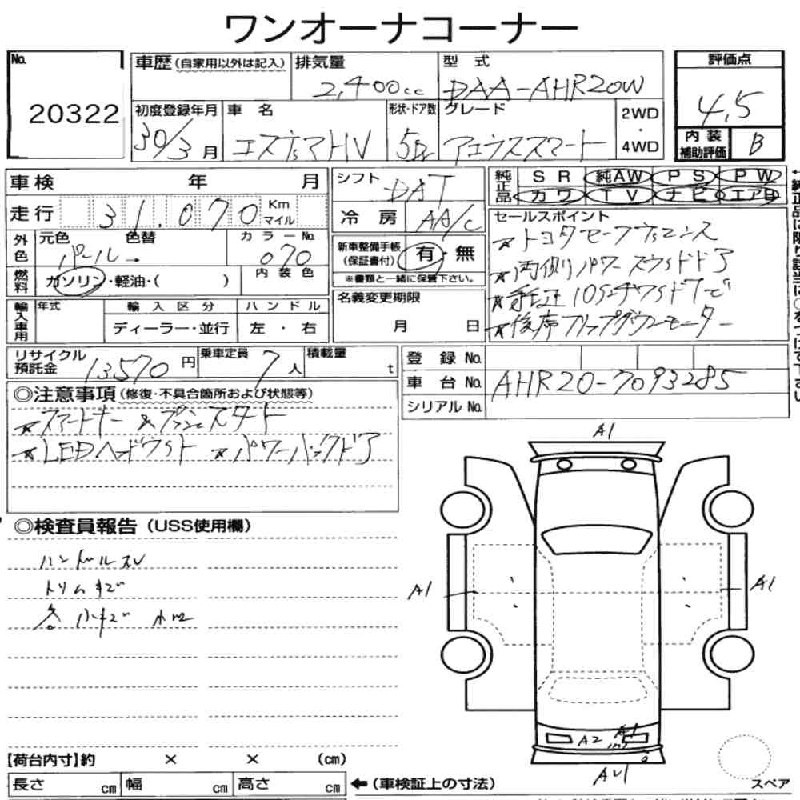 ワンオーナコーナー
No. 20322
車歴 (自家用以外は記入) 排気量 2,400cc 型式 DAA-AHR20W
評価点 4,5
初度登録年月 30/3月 車名 エスティマHV 形状・ドア数 5D グレード アエラススマート 2WD・4WD
内装補助評価 B
車検 年 月
シフト DAT
純正品 SR 純AW PS PW
カワ TV ナビ エアB
走行 31,070 Km マイル
冷房 AA/C
セールスポイント
外色 元色 パール 色替 カラーNo. 070
内装色
新車整備手帳(保証書付) 有・無
※書類と一緒に保管下さい。
★トヨタセーフティセンス
★両側パワースライドドア
燃料 ガソリン・軽油・( )
輸入車用 年式 輸入区分 ハンドル
ディーラー・並行 左・右
名義変更期限 月 日
★後席フリップダウンモニター
リサイクル預託金 13,570円 乗車定員 7人 積載量 t
登録No.
車台No. AHR20-7093285
シリアルNo.
◎注意事項 (修復・不具合箇所および状態等)
★スマートキー &プッシュスタート
★LEDヘッドライト ★パワーバックドア
◎検査員報告 (USS使用欄)
ハンドルスレ
トリムキズ
各小キズ
A1
A1
A1
A2
スペア
【荷台内寸】約 × × (cm)
長さ cm 幅 cm 高さ cm ←(車検証上の寸法)